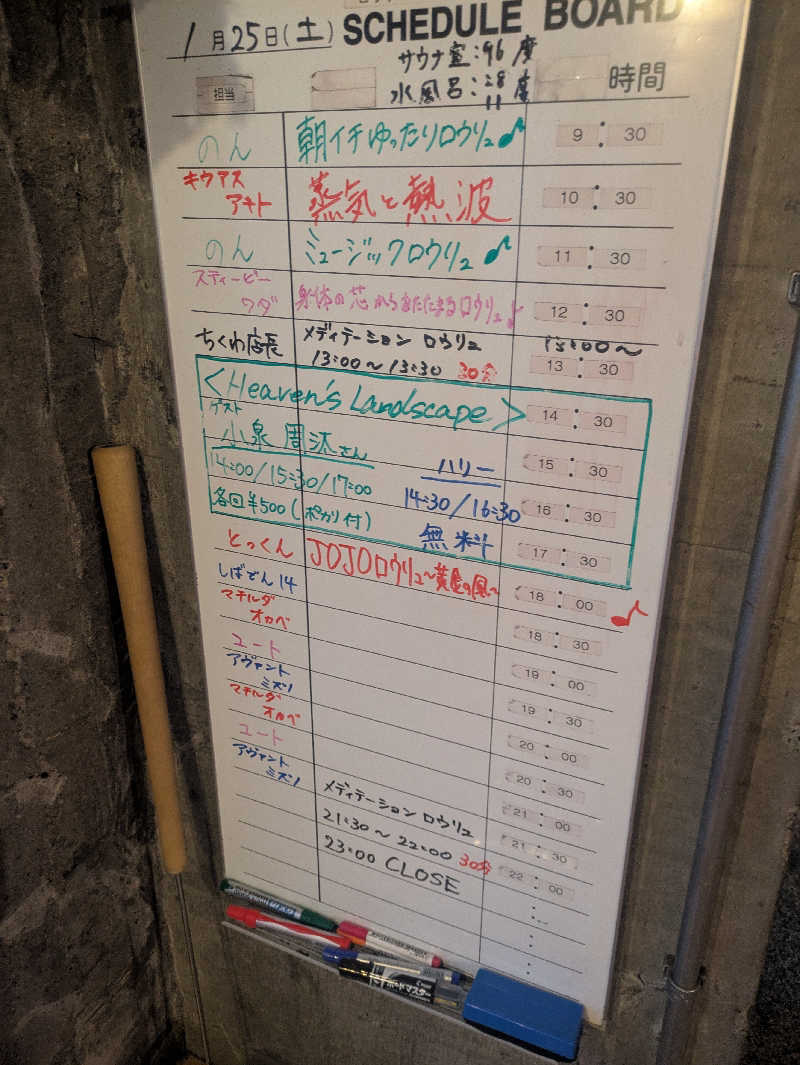 1月25日(土) SCHEDULE BOARD
サウナ室:96度
水風呂:28 11度
担当 時間
のん 朝イチゆったりロウリュ♪ 9:30
キウアス アキト 蒸気と熱波 10:30
のん ミュージックロウリュ♪ 11:30
スティービー ワダ 身体の芯からあたたまるロウリュ♪ 12:30
ちくわ店長 メディテーション ロウリュ 13:00〜
13:00〜13:30 30分 13:30
<Heaven's Landscape> 14:30
ゲスト
小泉 周汰さん ハリー 15:30
14:00/15:30/17:00 14:30/16:30 16:30
各回¥500(ポカリ付) 無料 17:30
とっくん JOJOロウリュ〜黄金の風〜 18:00 ♪
しばでん14 18:30
マチルダ オカベ 19:00
ユート 19:30
アヴァント ミズソ 20:00
マチルダ オカベ 20:30
ユート 21:00
アヴァント ミズソ 21:30
メディテーション ロウリュ 22:00
21:30〜22:00 30分
23:00 CLOSE
ボードマスター